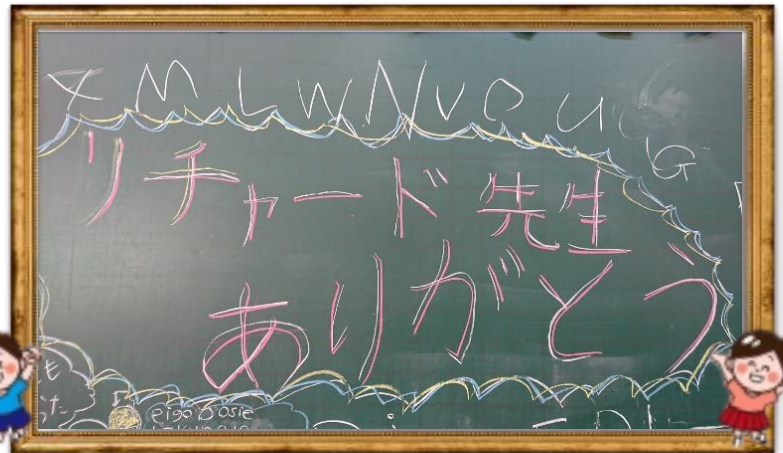 X M L W N V C U G
リチャード先生
ありがとう
も
た
eigo o osie